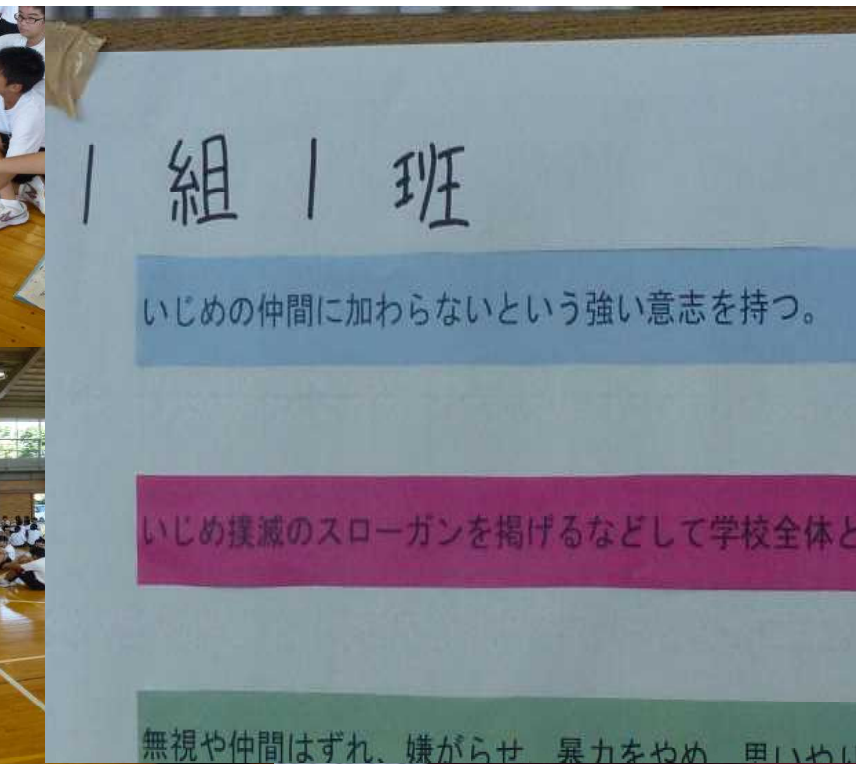 1 組 1 班
いじめの仲間に加わらないという強い意志を持つ。
いじめ撲滅のスローガンを掲げるなどして学校全体と
無視や仲間はずれ、嫌がらせ 暴力をやめ 思いやり